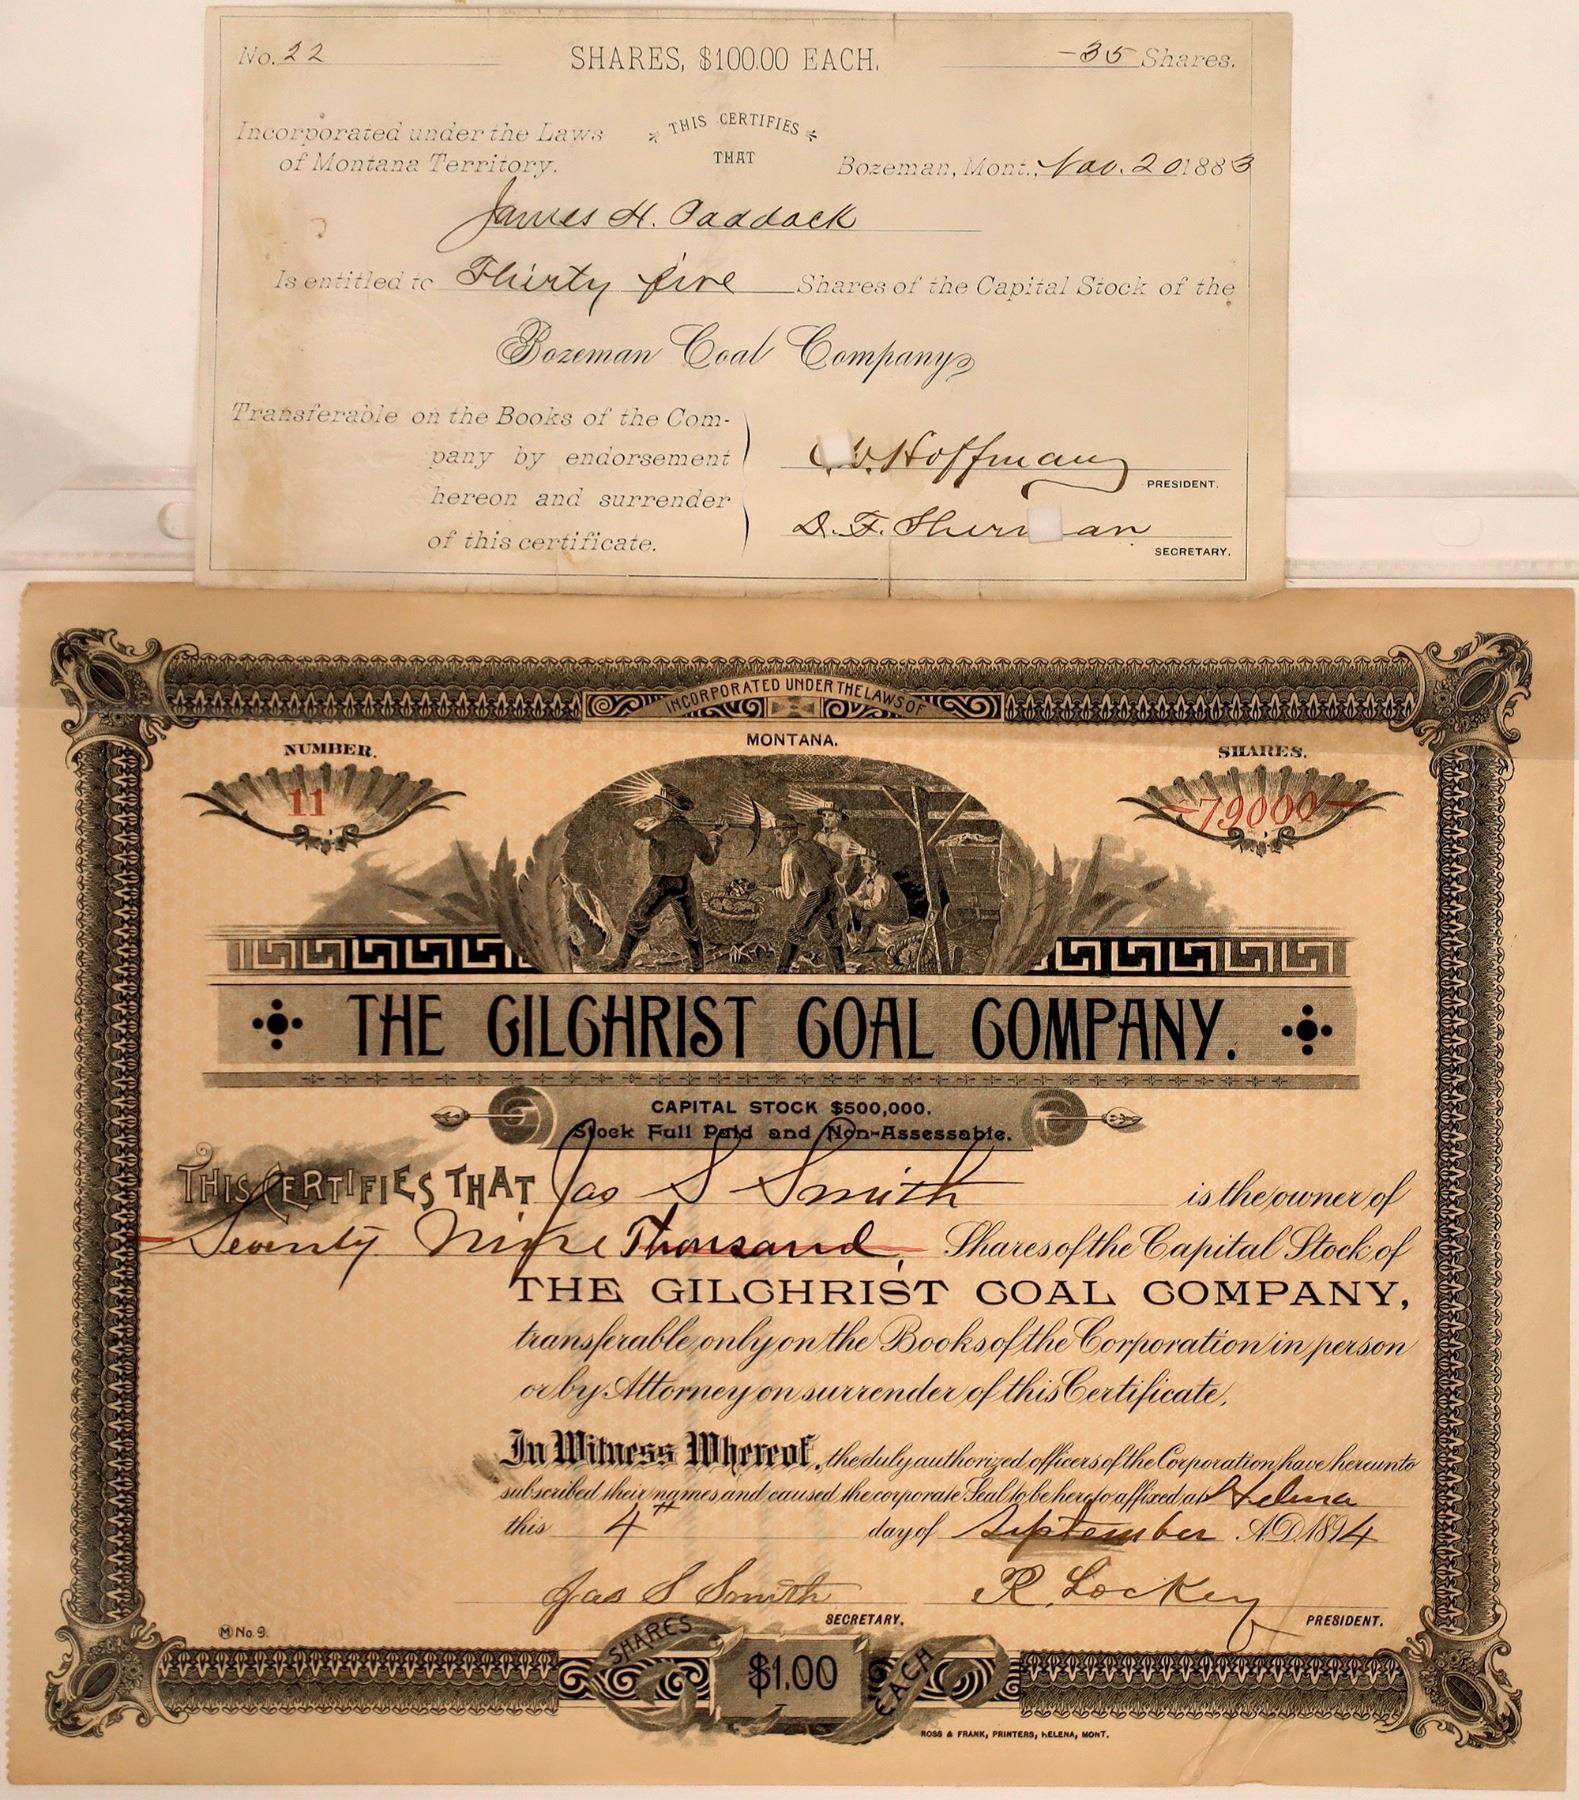 No. 22 SHARES, $100.00 EACH. -35 Shares.
Incorporated under the Laws of Montana Territory.
THIS CERTIFIES THAT
Bozeman, Mont., Nov. 20 1883
James H. Paddock
Is entitled to Thirty five Shares of the Capital Stock of the
Bozeman Coal Company
Transferable on the Books of the Com-
pany by endorsement
hereon and surrender
of this certificate.
Hoffman
PRESIDENT.
D. F. Sherman
SECRETARY.
INCORPORATED UNDER THE LAWS OF
MONTANA.
NUMBER. SHARES.
11 -79000-
THE GILCHRIST COAL COMPANY.
CAPITAL STOCK $500,000.
Stock Full Paid and Non-Assessable.
THIS CERTIFIES THAT Jas S Smith is the owner of
Seventy Nine Thousand, Shares of the Capital Stock of
THE GILCHRIST COAL COMPANY,
transferable only on the Books of the Corporation in person
or by Attorney on surrender of this Certificate.
In Witness Whereof, the duly authorized officers of the Corporation have hereunto
subscribed their names and caused the corporate Seal to be hereto affixed at Helena
this 4th day of September A.D. 1894
Jas S Smith R. Lockey
SECRETARY. PRESIDENT.
M No. 9.
SHARES $1.00 EACH
ROSS & FRANK, PRINTERS, HELENA, MONT.